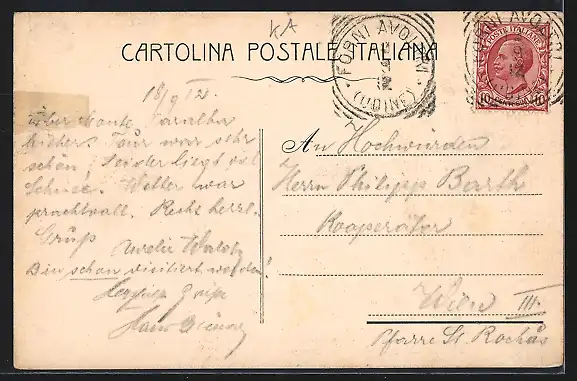 KA
CARTOLINA POSTALE ITALIANA
FORNI AVOLTRI (UDINE)
FORNI AVOLTRI
POSTE ITALIANE
10 CENTESIMI 10
18/9 12.
Über Monte
hieher. Tour war sehr
schön, leider liegt viel
Schnee. Wetter war
prachtvoll. Recht herzl.
Gruß
Aurelie
Bin schon visitiert worden!
Hans
An Hochwürden
Herrn Philipp Barth
Kooperator
Wien III.
Pfarre St. Rochus